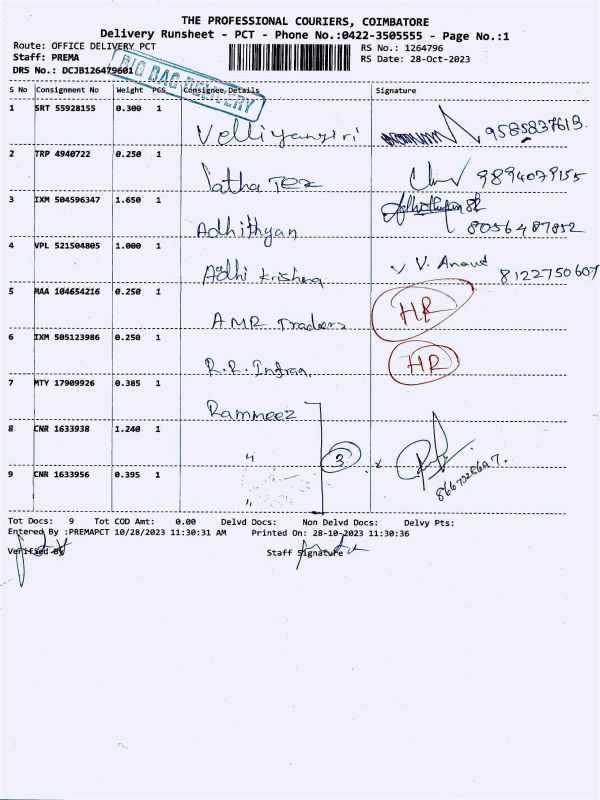 THE PROFESSIONAL COURIERS, COIMBATORE
Delivery Runsheet - PCT - Phone No.:0422-3505555 - Page No.:1
Route: OFFICE DELIVERY PCT
RS No.: 1264796
Staff: PREMA
RS Date: 28-Oct-2023
DRS No.: DCJB126479601
BIG BAG DELIVERY
S No Consignment No Weight PCS Consignee Details Signature
1 SRT 55928155 0.300 1 Velliyangiri 9585837613.
2 TRP 4940722 0.250 1 Jatha Tex 9894079155
3 IXM 504596347 1.650 1 Adhithyan 8056487852
4 VPL 521504805 1.000 1 Adhi Krishna V. Anand 8122750607
5 MAA 104654216 0.250 1 AMR Traders HR
6 IXM 505123986 0.250 1 R.R. Infraa. HR
7 MTY 17909926 0.385 1 Rammeez
8 CNR 1633938 1.240 1 " 3
9 CNR 1633956 0.395 1 "
Tot Docs: 9 Tot COD Amt: 0.00 Delvd Docs: Non Delvd Docs: Delvy Pts:
Entered By :PREMAPCT 10/28/2023 11:30:31 AM Printed On: 28-10-2023 11:30:36
Verified By Staff Signature